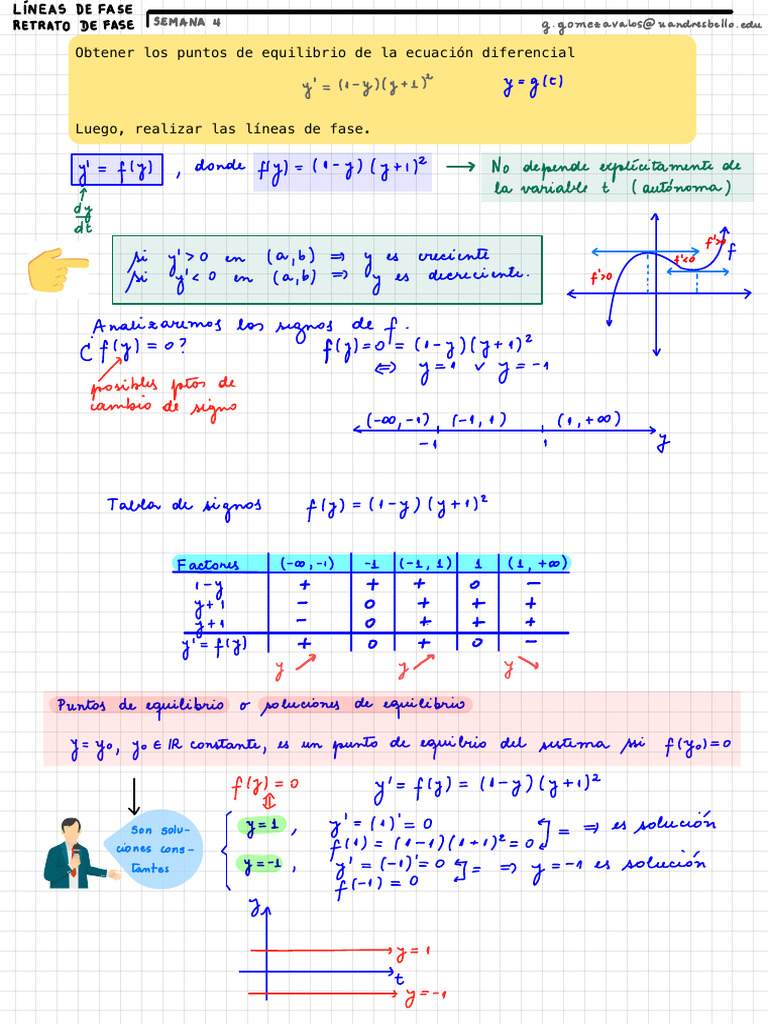 LÍNEAS DE FASE
RETRATO DE FASE
SEMANA 4
g.gomezavalos@uandresbello.edu
Obtener los puntos de equilibrio de la ecuación diferencial
y' = (1-y)(y+1)² y = g(t)
Luego, realizar las líneas de fase.
y' = f(y) , donde f(y) = (1-y)(y+1)² → No depende explícitamente de
la variable t (autónoma)
↑
dy/dt
si y'>0 en (a,b) ⇒ y es creciente
si y'<0 en (a,b) ⇒ y es decreciente.
f'>0 f'<0 f'>0 f
Analizaremos los signos de f.
¿f(y) = 0? f(y)=0 = (1-y)(y+1)²
⇔ y=1 ∨ y=-1
posibles ptos de
cambio de signo
(-∞,-1) (-1,1) (1,+∞)
-1 1 y
Tabla de signos f(y) = (1-y)(y+1)²
Factores (-∞,-1) -1 (-1,1) 1 (1,+∞)
1-y + + + 0 -
y+1 - 0 + + +
y+1 - 0 + + +
y'=f(y) + 0 + 0 -
y ↗ y ↗ y ↘
Puntos de equilibrio o soluciones de equilibrio
y=y₀, y₀∈ℝ constante, es un punto de equibrio del sistema ssi f(y₀)=0
f(y)=0 y' = f(y) = (1-y)(y+1)²
⇕
Son solu-
ciones cons-
tantes
y=1 , y'=(1)'=0
f(1) = (1-1)(1+1)²=0 = ⇒ es solución
y=-1 , y'=(-1)'=0
f(-1) = 0 = ⇒ y=-1 es solución
y
y=1
t
y=-1